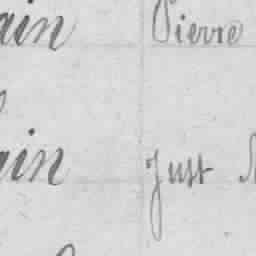 ain Pierre
ain Just